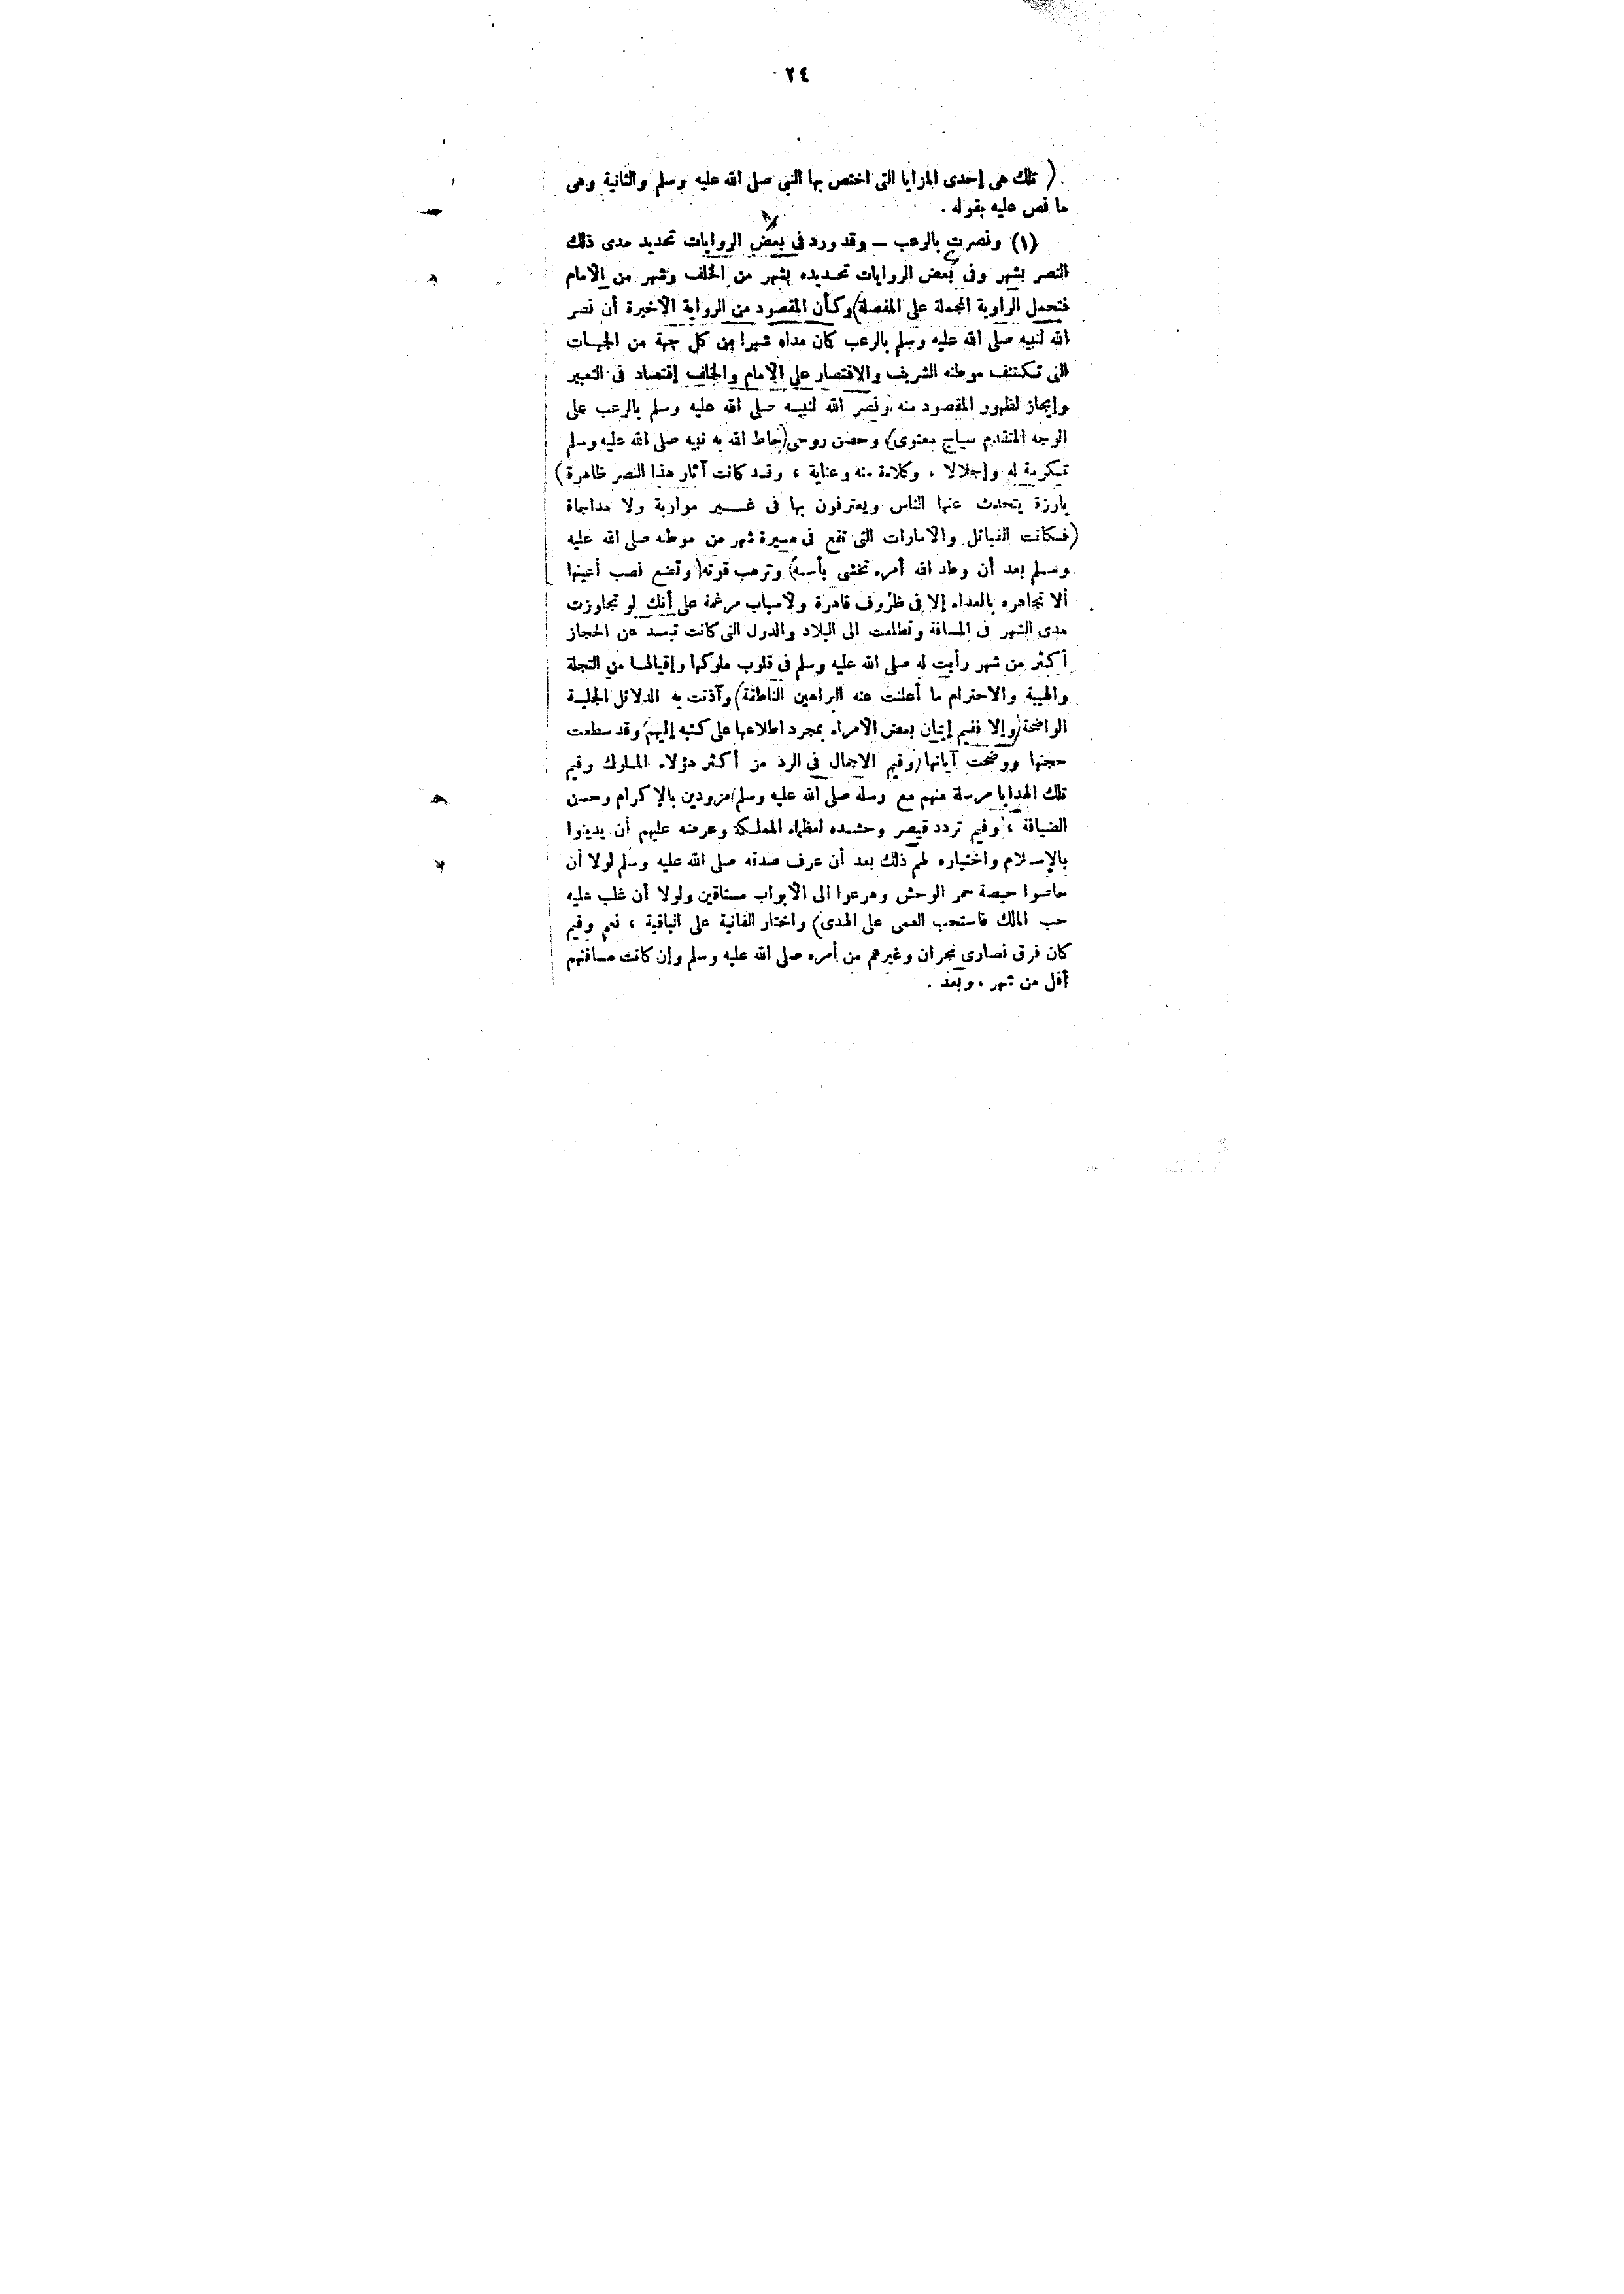 ٢٤
( تلك هى إحدى المزايا التى اختص بها النبي صلى الله عليه وسلم والثانية وهى
ما نص عليه بقوله .
(١) ونصرت بالرعب – وقد ورد فى بعض الروايات تحديد مدى ذلك
النصر بشهر وفى بعض الروايات تحديده بشهر من الخلف وشهر من الامام
فتحمل الراوية المجملة على المفصلة) وكأن المقصود من الرواية الأخيرة أن نصر
الله لنبيه صلى الله عليه وسلم بالرعب كان مداه شهرا من كل جهة من الجهات
التى تكتنف موطنه الشريف والاقتصار على الامام والخلف إقتصاد فى التعبير
وإيجاز لظهور المقصود منه ونصر الله لنبيه صلى الله عليه وسلم بالرعب على
الوجه المتقدم سياج معنوى) وحصن روحى (حاط الله به نبيه صلى الله عليه وسلم
تكرمة له وإجلالا ، وكلاءة منه وعناية ، وقد كانت آثار هذا النصر ظاهرة)
بارزة يتحدث عنها الناس ويعترفون بها فى غير مواربة ولا مداجاة
(فكانت القبائل والامارات التى تقع فى مسيرة شهر من موطنه صلى الله عليه
وسلم بعد أن وطد الله أمره تخشى بأسه) وترهب قوته (وتضع نصب أعينها
ألا تجاهره بالعداء إلا فى ظروف قاهرة ولأسباب مرغمة على أنك لو تجاوزت
مدى الشهر فى المسافة وتطلعت الى البلاد والدول التى كانت تبعد عن الحجاز
أكثر من شهر رأيت له صلى الله عليه وسلم فى قلوب ملوكها وإقيالها من التجلة
والهيبة والاحترام ما أعلنت عنه البراهين الناطقة) وآذنت به الدلائل الجلية
الواضحة (وإلا ففيم إيمان بعض الأمراء بمجرد اطلاعها على كتبه إليهم وقد سطعت
حجتها ووضحت آياتها (وفيم الاجمال فى الرد من أكثر هؤلاء الملوك وفيم
تلك الهدايا مرسلة منهم مع رسله صلى الله عليه وسلم) مزودين بالإكرام وحسن
الضيافة ، (وفيم تردد قيصر وحشده لعظماء المملكة وعرضه عليهم أن يدينوا
بالإسلام واختياره لهم ذلك بعد أن عرف صدقه صلى الله عليه وسلم لولا أن
حاصوا حيصة حمر الوحش وهرعوا الى الأبواب مستاقين ولولا أن غلب عليه
حب الملك فاستحب العمى على الهدى) واختار الفانية على الباقية ، نعم وفيم
كان فرق نصارى نجران وغيرهم من أمره صلى الله عليه وسلم وإن كانت مسافتهم
أقل من شهر ، وبعد .